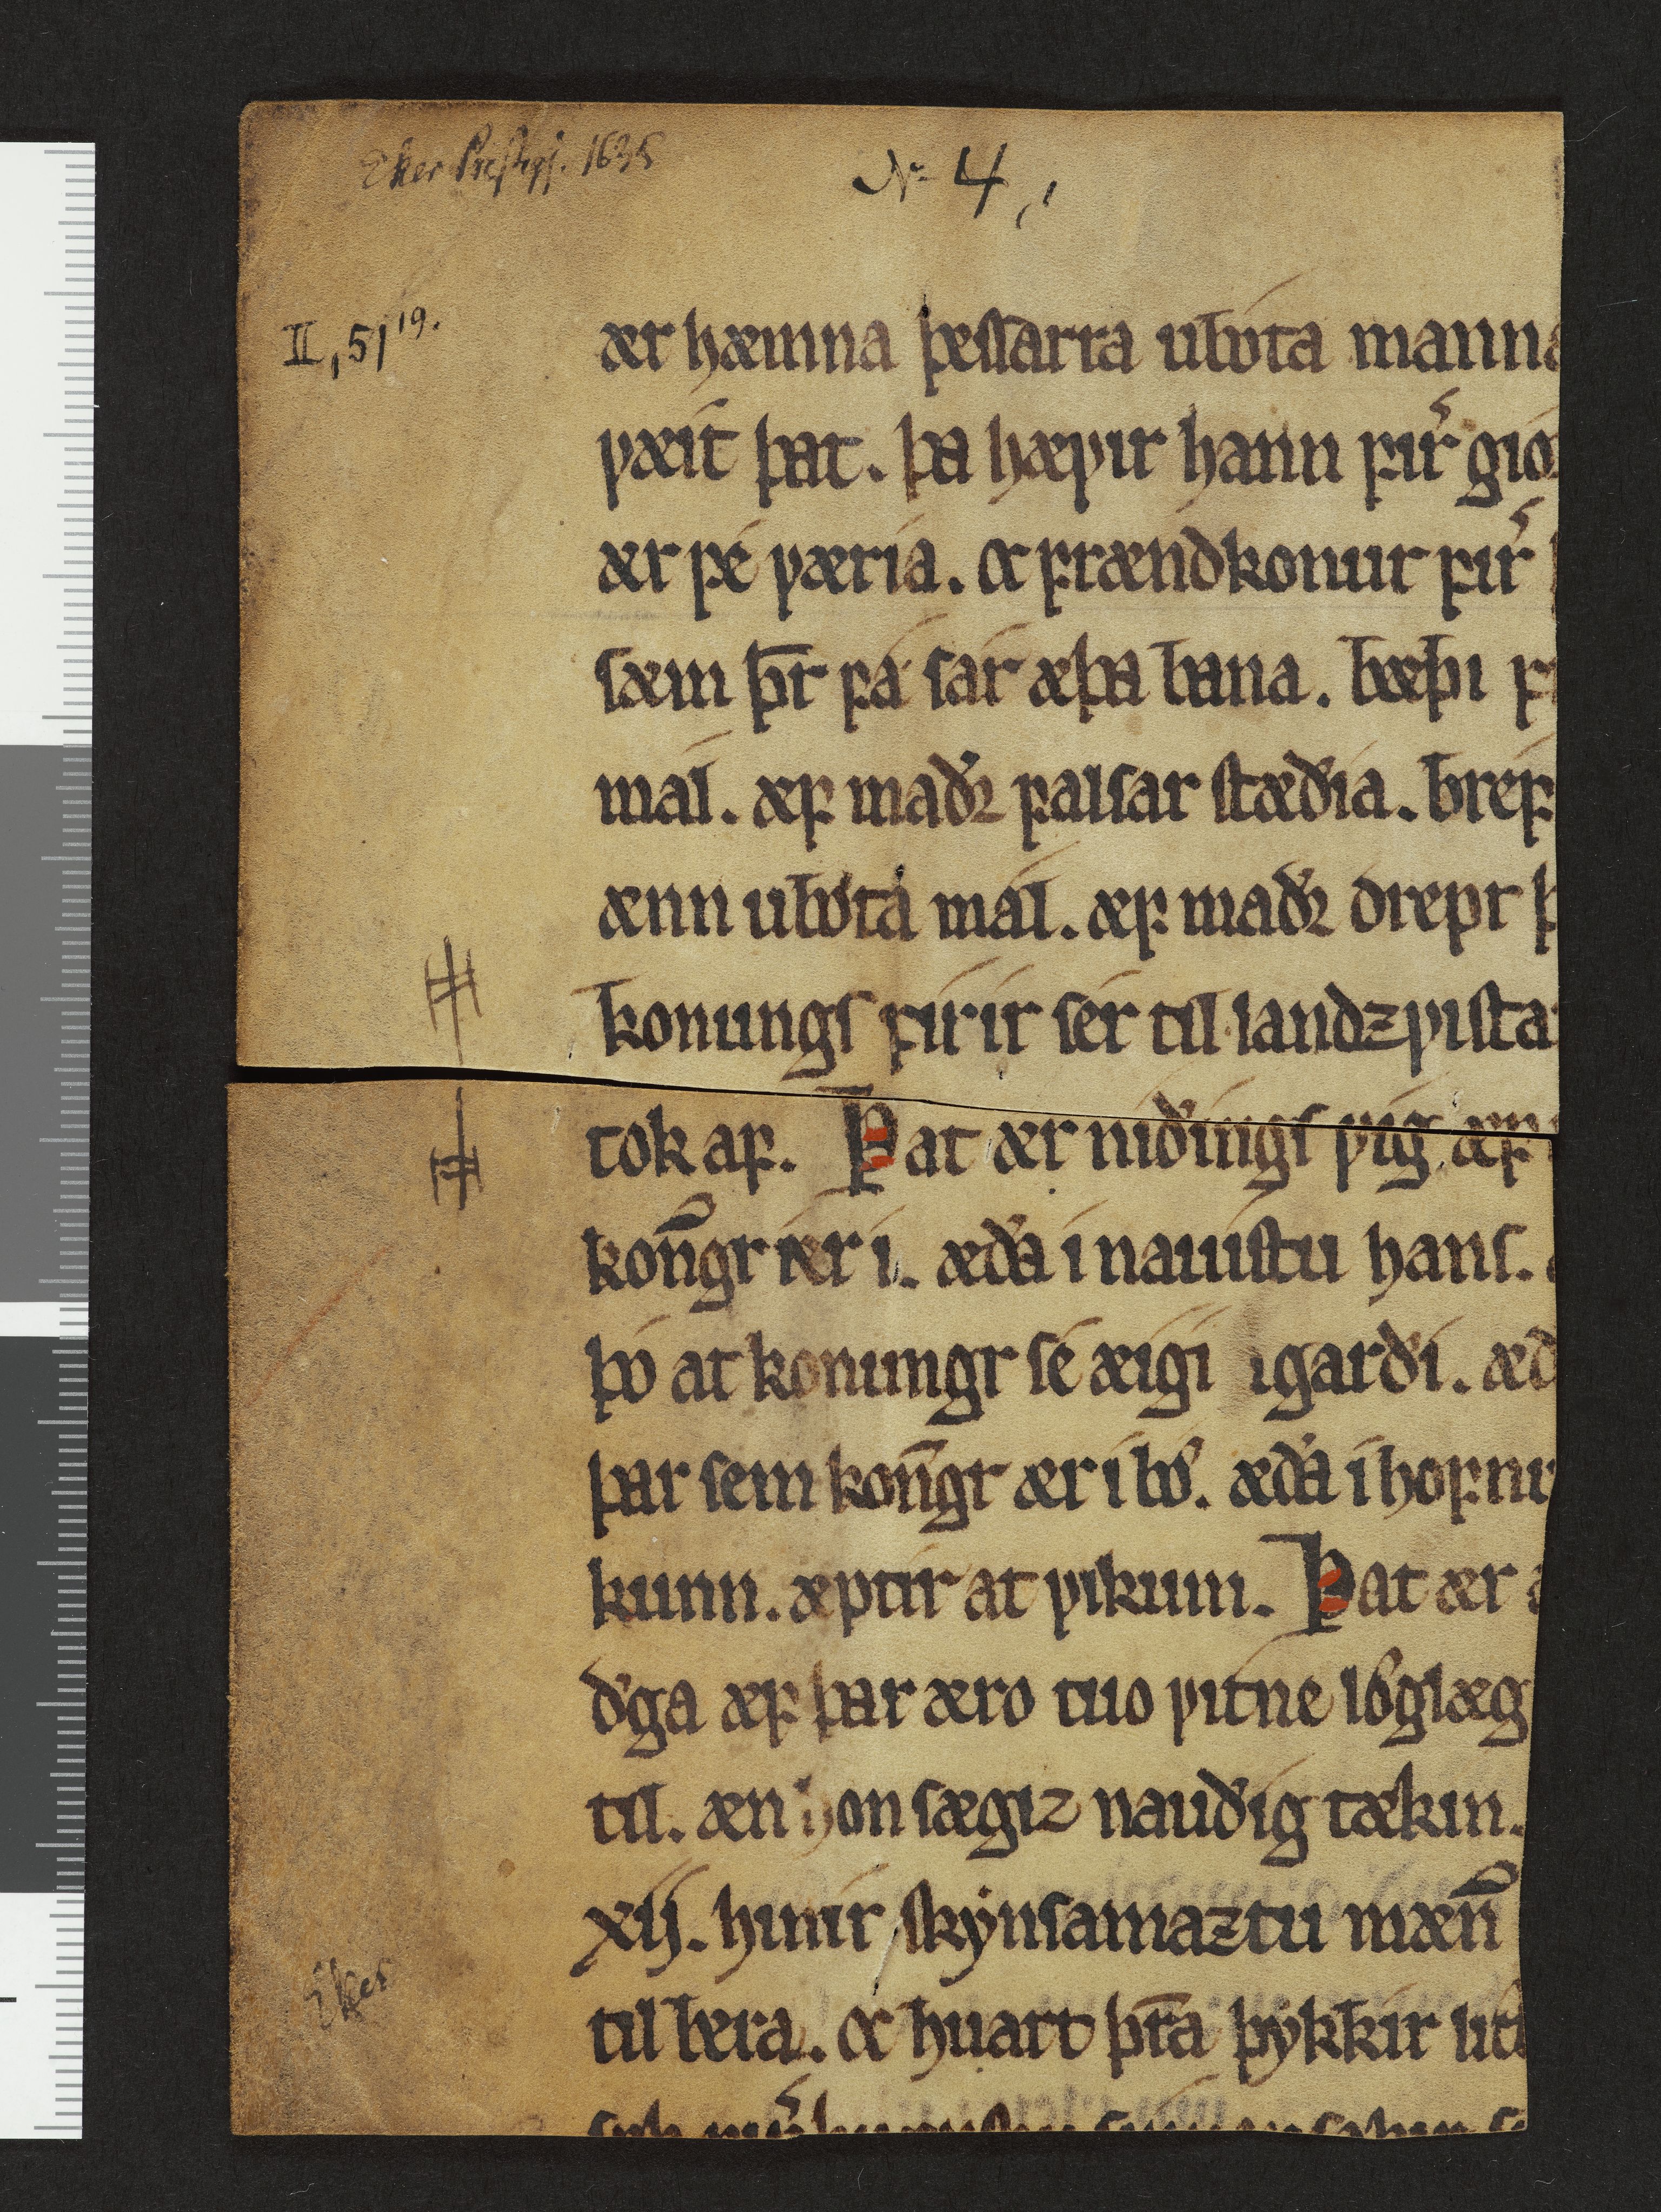 Eker Prestegj. 1635
No 4,
II, 51 19.
ær hæmna þessarra ubota manna
væit þat. þa hævir hann fir͛ gior
ær fé væria. oc frændkonur fir͛
sæm þr̅ fá sár æþa bana. bæþi f
mál. æf maðꝛ falsar stæðia. bréf
ænn ubóta mál. æf maðꝛ drepr þ
konungs firir sér til landzvista
tok af. Þat ær niðings víg æf
kon̅gr ær i. æða i nauistu hans.
þo at konungr sé æigi igarði. æð
þar sem kon̅gr ær i bø. æða i hofnu
kunn. æptir at vikum. Þat ær
ðga æf þar æro tuo vitne loglæg
til. æn hon sægiz nauðig tækin.
xij. hinir skynsamaztu mæn̅
til bera. oc huart þr̅a þykkir
Eker